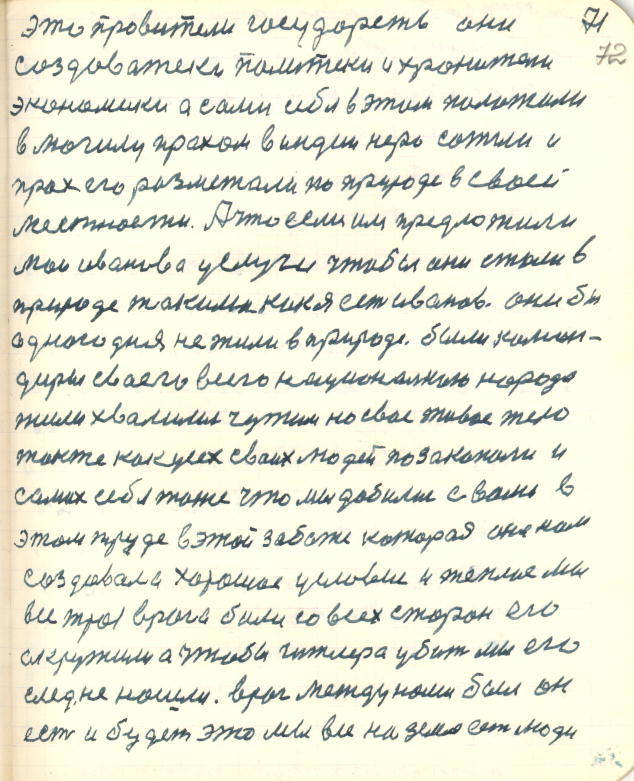 это провители государств они 71
создоватеки политеки и хронители 72
экономики а сами себя в этом положили
в могилу прахом в индии неро сотли и
прах его размекали по природе в своей
местности. А что если им предложили
мои иванова услуги чтобы они стали в
природе такими как я есть иванов. они бы
одного дня не жили в природе. были коман-
диры своего всего национально народа
жили хвалилис чужим но свое живое тело
также как усех своих людей позакопали и
самих себя тоже что мы добилис с вами в
этом труде в этой заботе которая она нам
создовала хорошое условие и теплое мы
все трое врага били со всех сторон его
окружили а чтобы гитлера убит мы его
след не нашли. враг между нами был он
ест и будет это мы все на земле ест люди